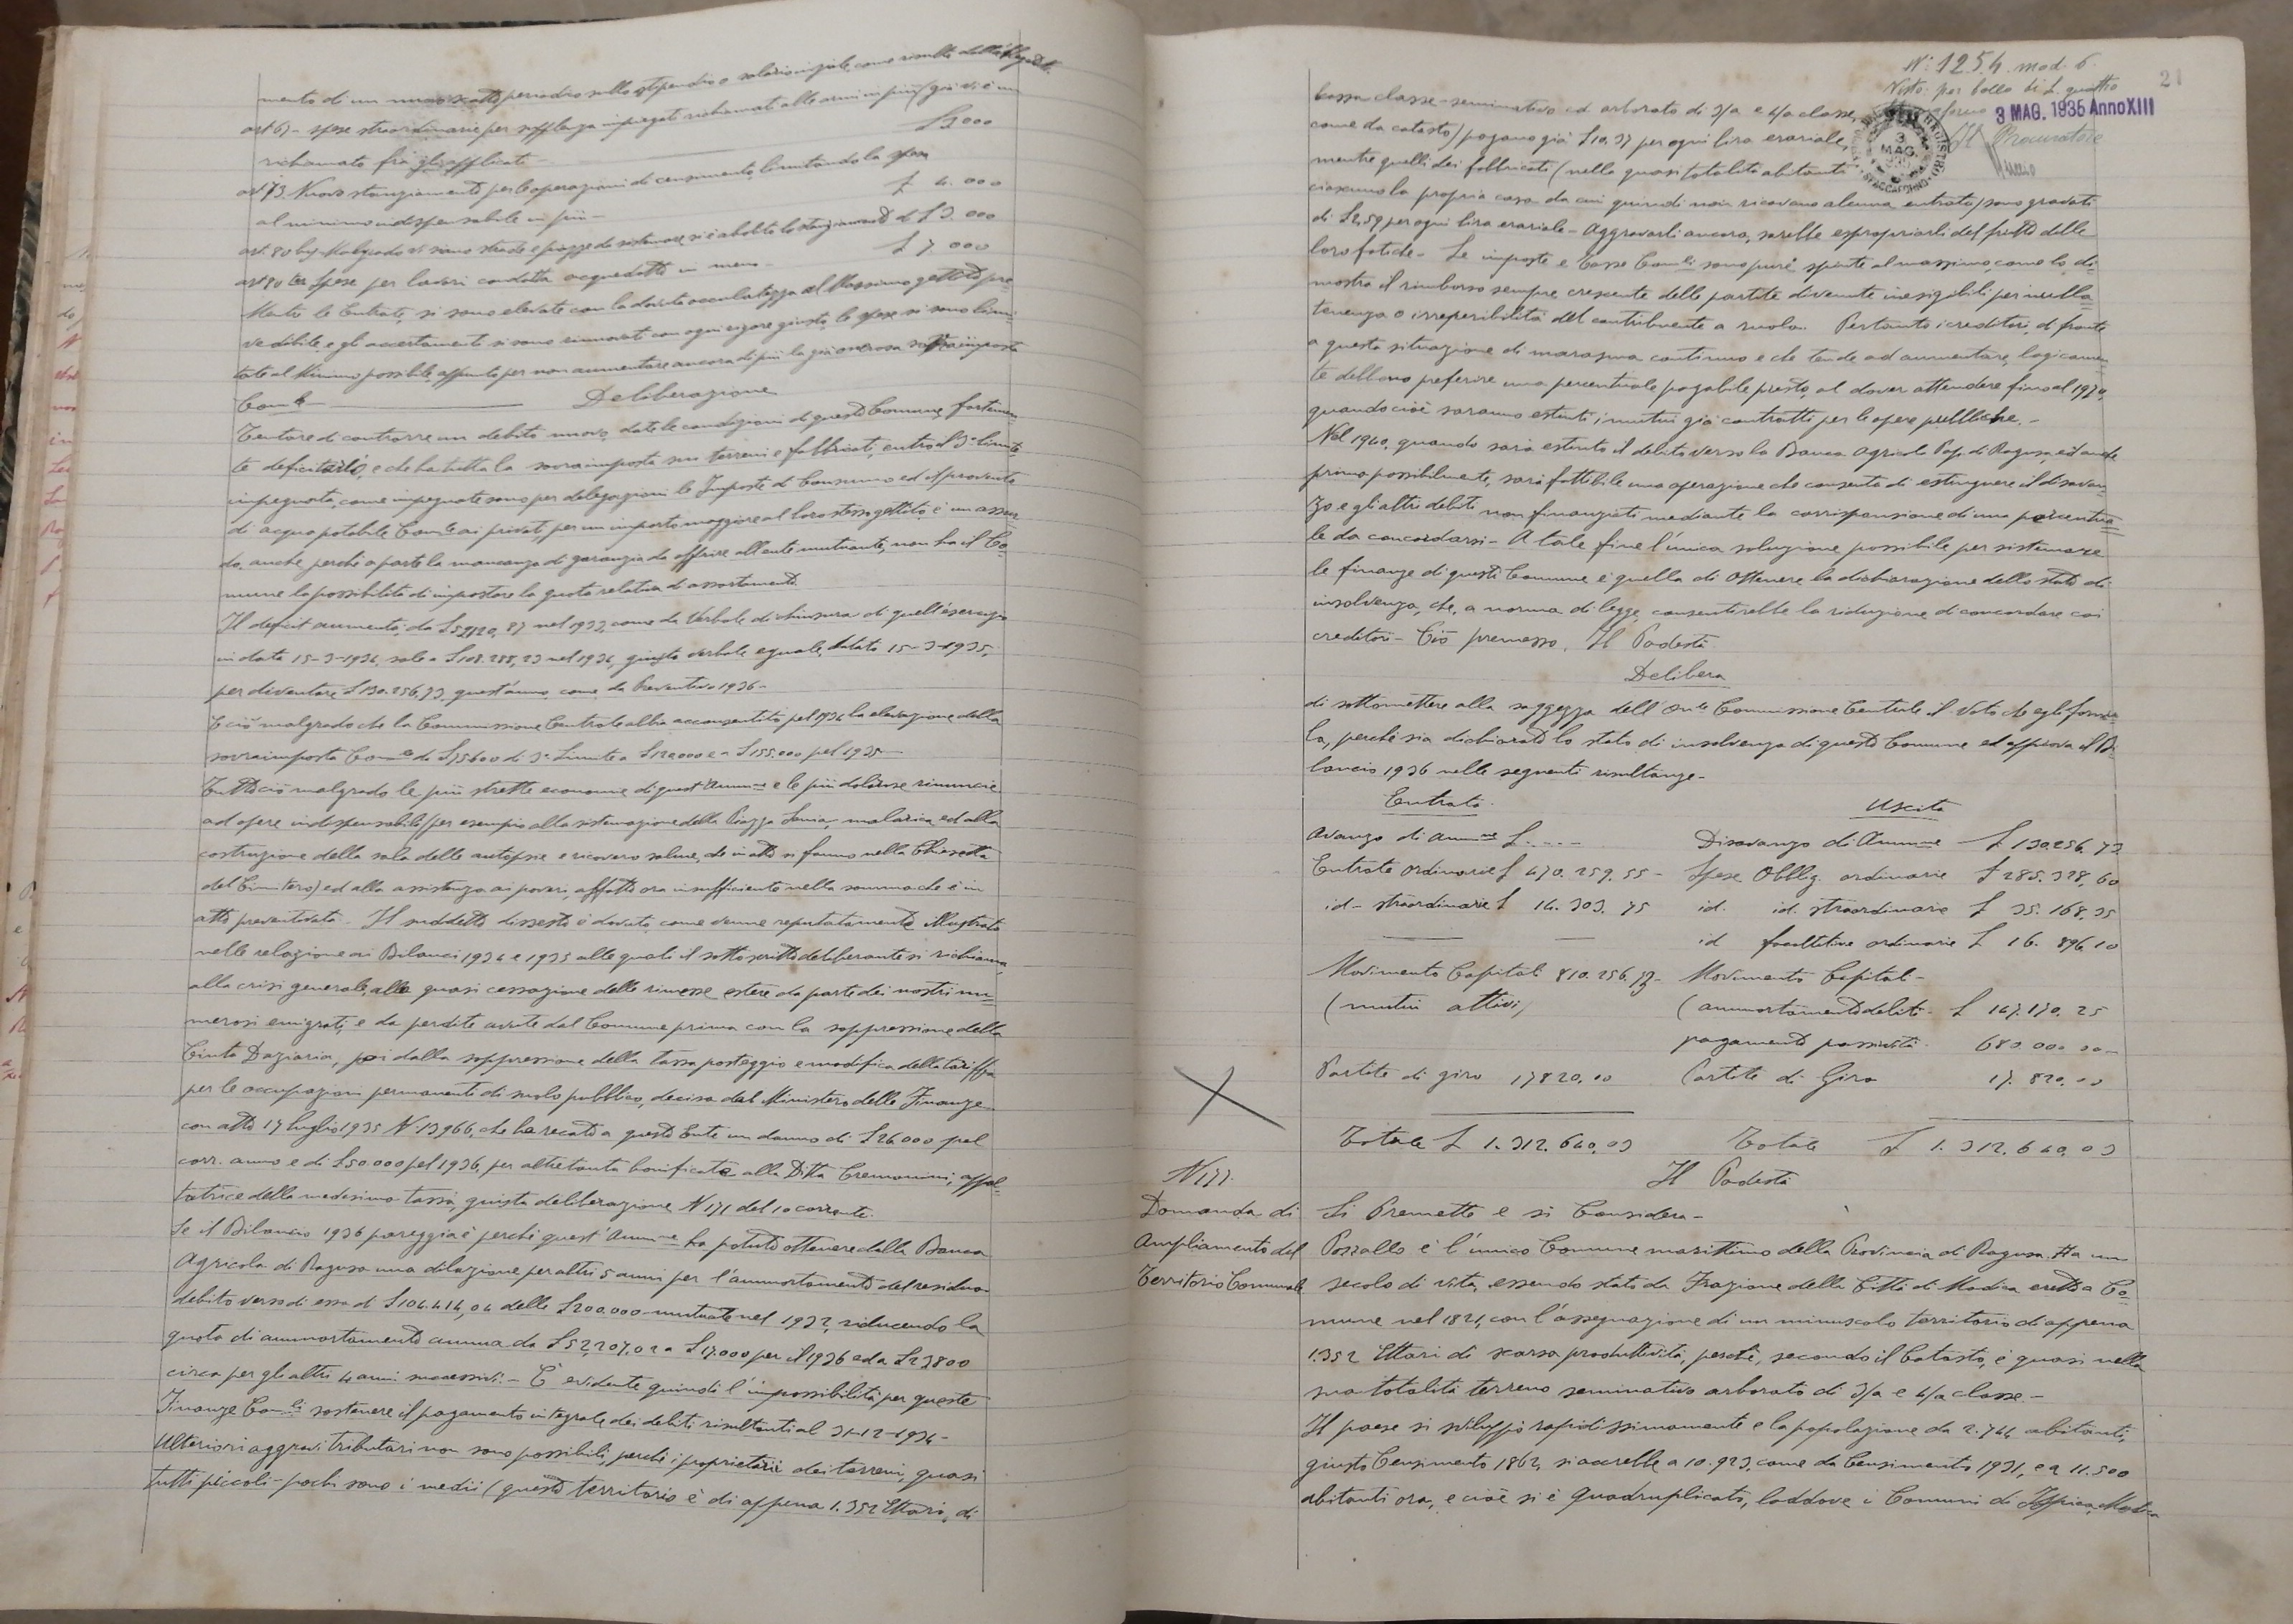 mento di un nuovo scatto periodico sullo stipendio o salario iniziale, come risulta dalla
art 67 - spese straordinarie per supplenza impiegati richiamati alle armi in più (già vi è un
richiamato fra gli applicati £ 3000
art 73. Nuovo stanziamento per le operazioni di censimento, limitando la spesa
al minimo indispensabile in più - £ 4.000
art. 80 bis Malgrado vi siano strade e piazze da sistemare si è abolito lo stanziamento di £ 3.000
art 80 ter Spese per lavori condotta acquedotto in meno - £ 7.000
Mentre le Entrate, si sono elevate con la dovuta oculatezza al Massimo gettito pre=
vedibile, e gli accertamenti si sono rinnovati con ogni rigore giusto, le spese si sono limi=
tate al Minimo possibile, appunto per non aumentare ancora di più la già onerosa sovraimposta
Com.le Deliberazione
Tentare di contrarre un debito nuovo, date le condizioni di questo Comune, fortemen=
te deficitario, e che ha tutta la sovraimposta sui terreni e fabbricati, entro il 3° limite
impegnata, come impegnate sono per delegazioni le Imposte di Consumo ed il provento
di acqua potabile Com.le ai privati, per un importo maggiore al loro stesso gettito, è un assur=
do, anche perché a parte la mancanza di garanzia da offrire all'ente mutuante, non ha il Co=
mune la possibilità di impostare la quota relativa di ammortamento.
Il deficit aumentò, da £ 59120,87 nel 1933, come da Verbale di chiusura di quell'esercizio
in data 15-3-1934, sale a £ 108.288,23 nel 1934, giusto verbale eguale, datato 15-3-1935,
per diventare £ 130.256,73 quest'anno, come da Preventivo 1936 -
E ciò malgrado che la Commissione Centrale abbia acconsentito pel 1934 la elevazione della
sovraimposta Com.le da £ 75600 di 3° Limite a £ 120000 e a £ 155.000 pel 1935 -
Tutto ciò malgrado le più strette economie di quest'Amm.ne e le più dolorose rinuncie
ad opere indispensabili (per esempio alla sistemazione della Piazza Senia, malarica ed alla
costruzione della sala delle autopsie e ricovero salme, che in atto si fanno nella Chiesetta
del Cimitero) ed alla assistenza ai poveri, affatto ora insufficiente nella somma che è in
atto preventivata. Il suddetto dissesto è dovuto, come venne reputatamente illustrato
nelle relazione ai Bilanci 1934 e 1935 alle quali il sottoscritto deliberante si richiama,
alla crisi generale, alla quasi cessazione delle rimesse estere da parte dei nostri nu=
merosi emigrati, e da perdite avute dal Comune prima con la soppressione della
Cinta Daziaria, poi dalla soppressione della tassa posteggio e modifica della tariffa
per le occupazioni permanenti di suolo pubblico, decisa dal Ministero delle Finanze
con atto 17 luglio 1935 N. 13966, che ha recato a questo Ente un danno di £ 26000 pel
corr. anno e di £ 50.000 pel 1936, per altrettanta bonificata alla Ditta Cremonini, appal=
tatrice della medesima tassa, giusta deliberazione N 171 del 10 corrente.
Se il Bilancio 1936 pareggia è perché quest'Amm.ne ha potuto ottenere dalla Banca
Agricola di Ragusa una dilazione per altri 5 anni per l'ammortamento del residuo
debito verso di essa di £ 104.414,04 delle £ 200.000 mutuate nel 1932, riducendo la
quota di ammortamento annua da £ 52,207,02 a £ 17.000 per il 1936 e da £ 23800
circa per gli altri 4 anni successivi. - È evidente quindi l'impossibilità per queste
Finanze Com.li sostenere il pagamento integrale dei debiti risultanti al 31-12-1934 -
Ulteriori aggravi tributari non sono possibili, perché i proprietari dei terreni, quasi
tutti piccoli - pochi sono i medii (questo territorio è di appena 1.352 Ettari, di
N° 1254 mod. 6
Visto: per bollo di L. quattro
21
3 MAG. 1936 Anno XIII
Il Procuratore
3
MAG.
bassa classe - seminativo ed arborato di 3/a e 4/a classe,
come da catasto) pagano già £ 10,37 per ogni lira erariale,
mentre quelli dei fabbricati (nella quasi totalità abitanti
ciascuno la propria casa da cui quindi non ricavano alcuna entrata) sono gravati
di £ 2,59 per ogni lira erariale - Aggravarli ancora, sarebbe espropriarli del frutto delle
loro fatiche - Le imposte e tasse Com.li sono pure, spinte al massimo, come lo di=
mostra il rimborso sempre crescente delle partite divenute inesigibili per nulla=
tenenza o irreperibilità del contribuente a ruolo. Pertanto i creditori, di fronte
a questa situazione di marasma continuo e che tende ad aumentare, logicamen=
te debbono preferire una percentuale pagabile presto, al dover attendere fino al 1970,
quando cioè saranno estinti, i mutui già contratti per le opere pubbliche. -
Nel 1940, quando sarà estinto il debito verso la Banca Agricola Pop. di Ragusa, ed anche
prima possibilmente, sarà fattibile una operazione che consenta di estinguere il disavan=
zo e gli altri debiti non finanziati mediante la corrispensione di una percentua=
le da concordarsi - A tale fine l'unica soluzione possibile per sistemare
le finanze di questo Comune è quella di ottenere la dichiarazione dello stato di
insolvenza, che, a norma di legge, consentirebbe la riduzione di concordare coi
creditori - Ciò premesso, Il Podestà
Delibera
di sottomettere alla saggezza dell'On.le Commissione Centrale il Voto che egli formu=
la, perché sia dichiarato lo stato di insolvenza di questo Comune ed approva il Bi=
lancio 1936 nelle seguenti risultanze -
Entrata Uscita
Avanzo di Amm.ne £ .... Disavanzo di Amm.ne £ 130.256,73
Entrate ordinarie £ 470.259.55 - Spese Obblig. ordinarie £ 285.328,60
id - straordinarie £ 14.303,75 id. id. straordinarie £ 35.168.35
id facoltative ordinarie £ 16.896,10
Movimento Capitali 810.256,73 - Movimento Capitali -
(mutui attivi) (ammortamento debiti - £ 147.170,25
pagamento passività - 680.000 00
Partite di giro 17820,00 Partite di Giro 17.820,00
Totale £ 1.312.640,03 Totale £ 1.312.640,03
Il Podestà
N 177.
Domanda di
Ampliamento del
Territorio Comunale
Si Premette e si Considera -
Pozzallo è l'unico Comune marittimo della Provincia di Ragusa. Ha un
secolo di vita, essendo stato da Frazione della Città di Modica eretto a Co=
mune nel 1821, con l'assegnazione di un minuscolo territorio di appena
1.352 Ettari di scarsa produttività, perché, secondo il Catasto, è quasi nella
sua totalità terreno seminativo arborato di 3/a e 4/a classe -
Il paese si sviluppò rapidissimamente e la popolazione da 2.744 abitanti,
giusto Censimento 1862, si accrebbe a 10.923, come da Censimento 1931, e a 11.500
abitanti ora, e cioè si è quadruplicato, laddove i Comuni di Ispica, Modica